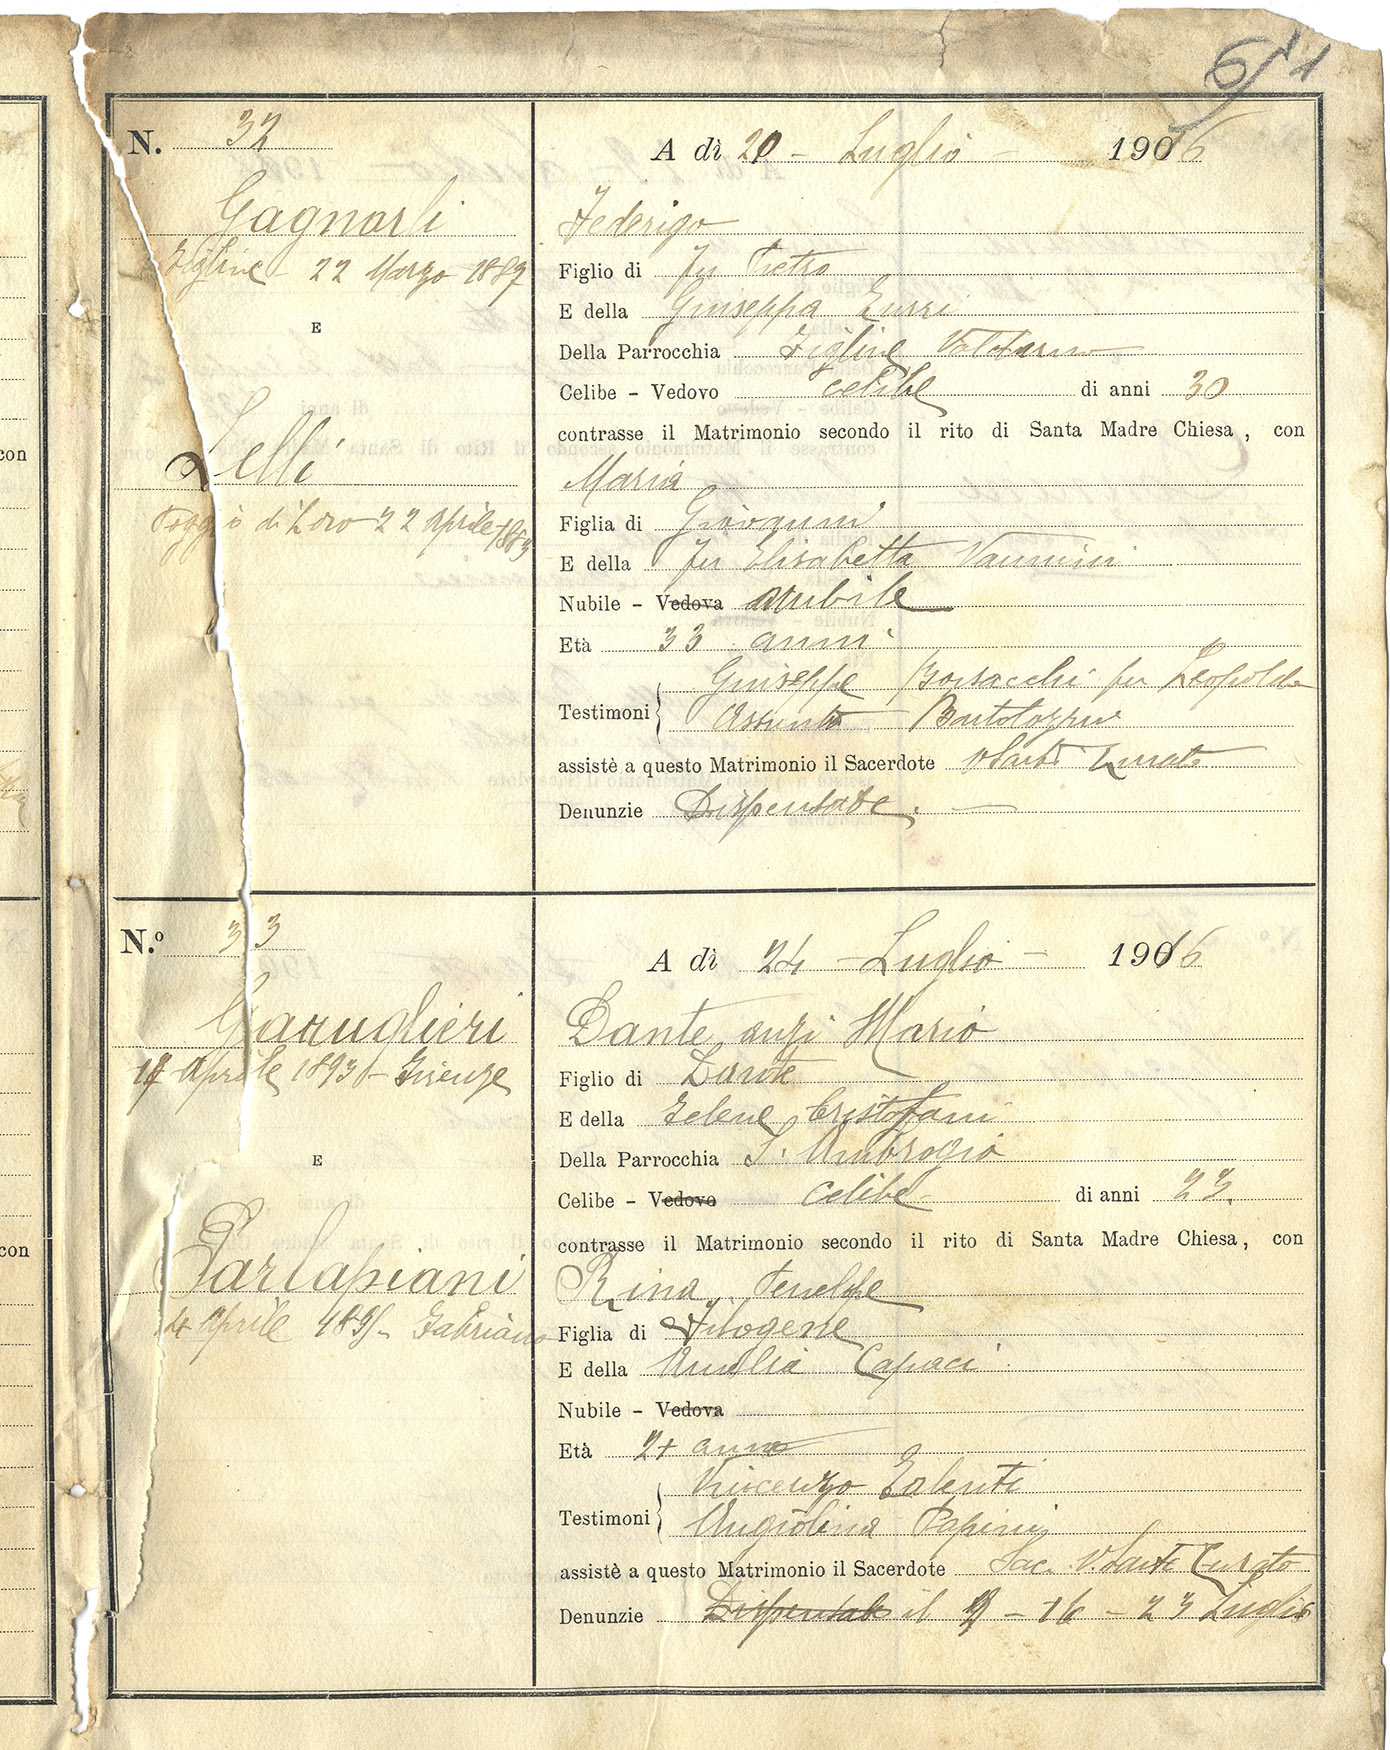 61
N. 32
A dì 20 - Luglio - 1916
Gagnarli
Federigo
Figline - 22 Marzo 1887
Figlio di fu Pietro
E della Giuseppa
E
Della Parrocchia Figline Valdarno
Celibe - Vedovo celibe di anni 30
contrasse il Matrimonio secondo il rito di Santa Madre Chiesa, con
Lelli
Maria
Poggio di Loro 22 Aprile 1883
Figlia di Giovanni
E della fu Elisabetta Vannini
Nubile - Vedova nubile
Età 33 anni
Giuseppe Borsacchi fu Leopoldo
Testimoni
Assunta Bartolozzi
assistè a questo Matrimonio il Sacerdote V. Sarti Curato
Denunzie Dispensate. -
N.º 33
A dì 24 - Luglio - 1916
Garuglieri
Dante anzi Mario
17 Aprile 1893 - Firenze
Figlio di Dante
E della Cristofani
Della Parrocchia S. Ambrogio
E
Celibe - Vedovo celibe di anni 23.
contrasse il Matrimonio secondo il rito di Santa Madre Chiesa, con
Parlapiani
Rina Penelope
4 Aprile 189 - Fabriano
Figlia di Filogene
E della Amalia Capaci
Nubile - Vedova
Età anni
Vincenzo
Testimoni
Angiolina Papini
assistè a questo Matrimonio il Sacerdote Sac. V. Sarti Curato
Denunzie Dispensate il 9 - 16 - 23 Luglio
con
con